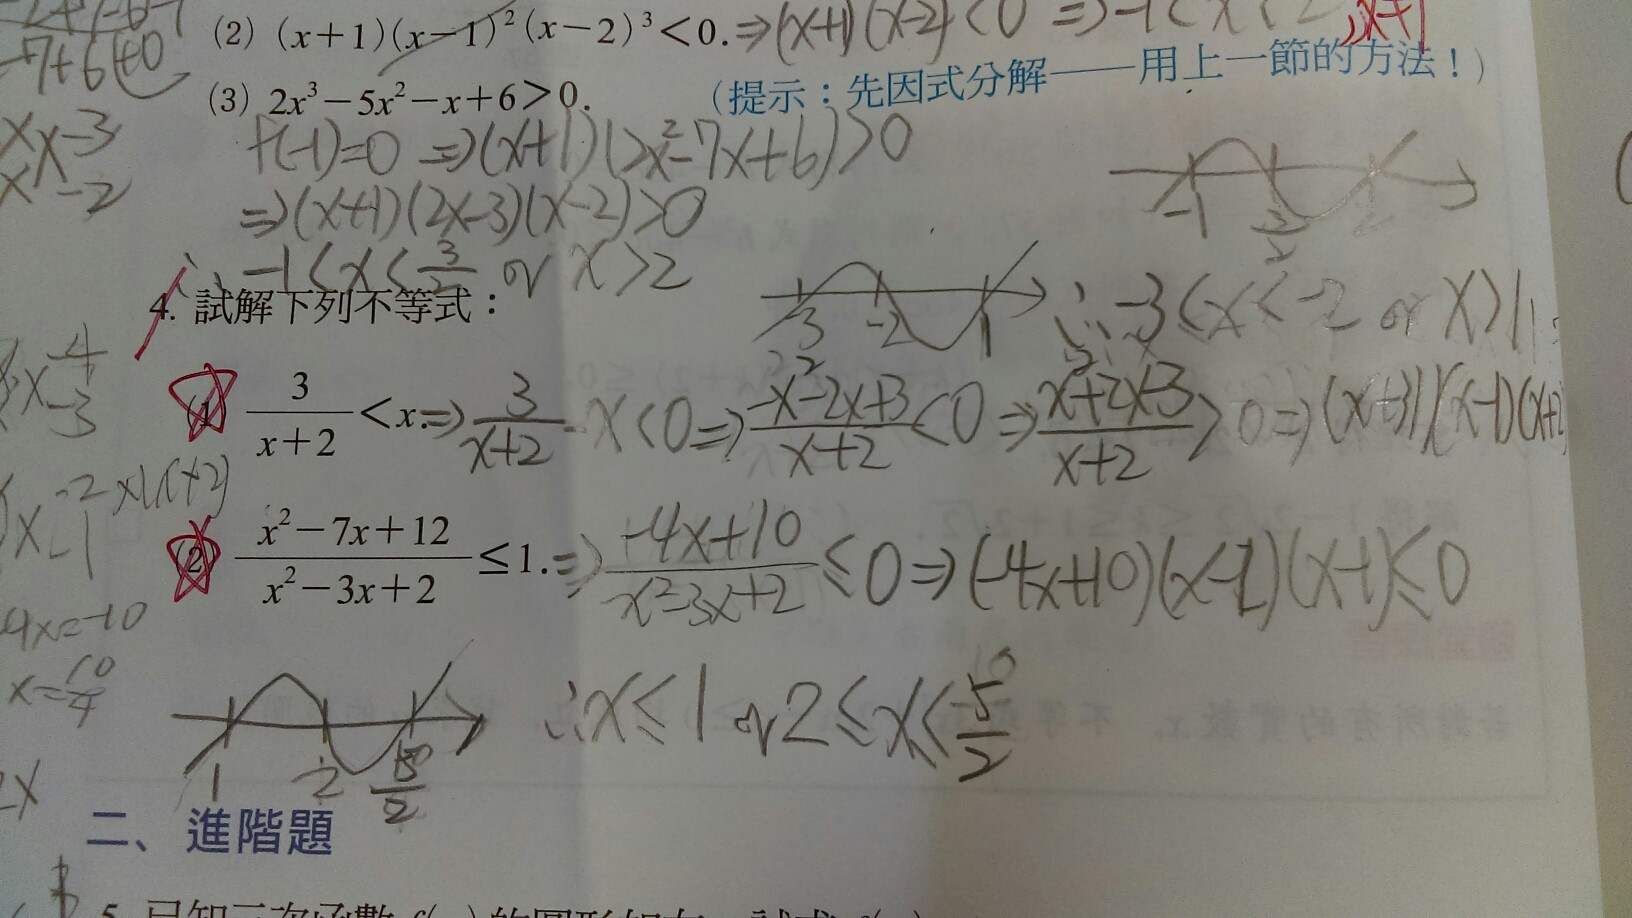 (2) (x+1)(x−1)²(x−2)³<0. ⇒(x+1)(x-2)<0 ⇒ -1<x<2
-7+6+0
(3) 2x³−5x²−x+6>0. (提示：先因式分解——用上一節的方法！)
f(-1)=0 ⇒(x+1)(2x²-7x+6)>0
x -3
x -2
-1 3/2 2
⇒(x+1)(2x-3)(x-2)>0
∴ -1<x<3/2 or x>2
4. 試解下列不等式：
-3 -2 1 ∴ -3<x<-2 or x>1
x -4
-3
(1) 3/(x+2) < x. ⇒ 3/(x+2) - x<0 ⇒ (-x²-2x+3)/(x+2) <0 ⇒ (x²+2x-3)/(x+2) >0 ⇒ (x+3)(x-1)(x+2)
x -2
-1
(2) (x²−7x+12)/(x²−3x+2) ≤1. ⇒ (-4x+10)/(x²-3x+2) ≤0 ⇒ (-4x+10)(x-2)(x-1)≤0
4x=-10
x=10/4
1 2 5/2
∴x≤1 or 2≤x≤5/2
2x
二、進階題
5. 已知三次函數